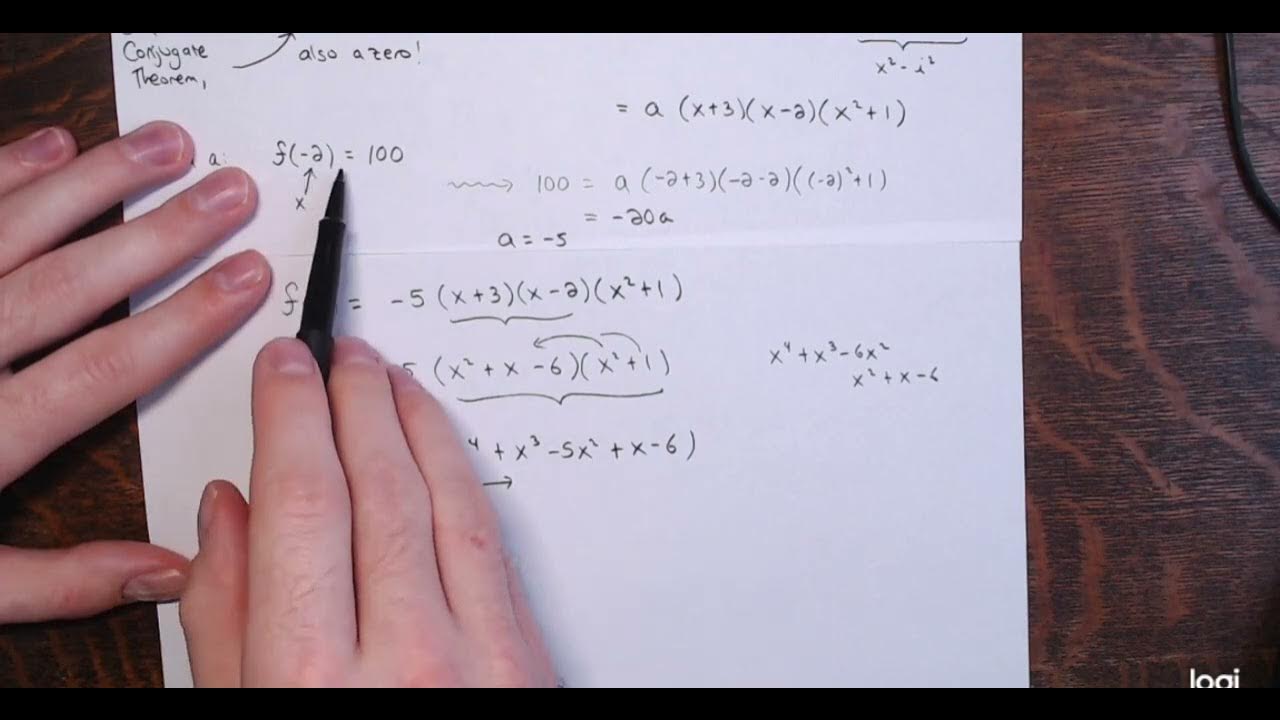 Conjugate
Theorem,
also a zero!
x² - i²
= a (x+3)(x-2)(x²+1)
a: f(-2) = 100
x
100 = a (-2+3)(-2-2)((-2)²+1)
= -20a
a = -5
f = -5 (x+3)(x-2)(x²+1)
5 (x² + x - 6)(x²+1)
x⁴ + x³ - 6x²
x² + x - 6
⁴ + x³ - 5x² + x - 6)
logi